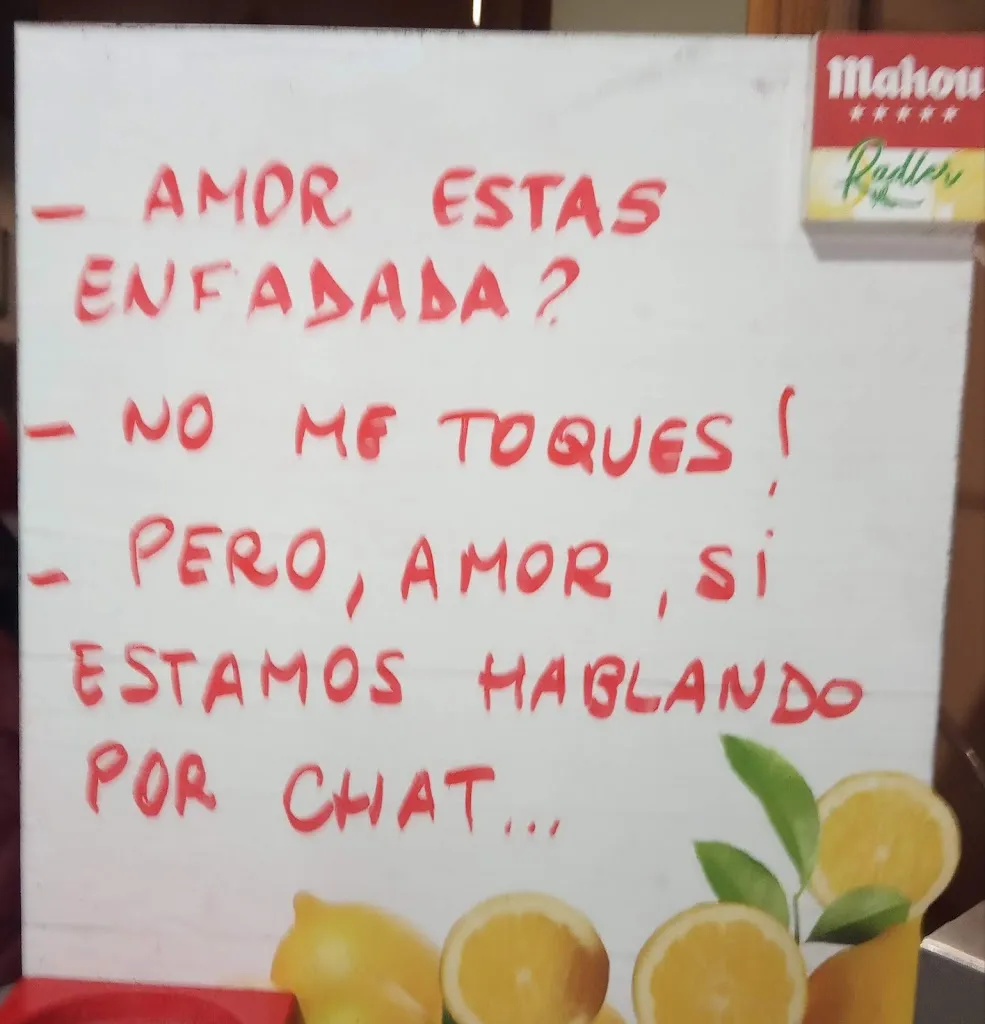 Mahou
Radler
- AMOR ESTAS
ENFADADA?
- NO ME TOQUES!
- PERO, AMOR, SI
ESTAMOS HABLANDO
POR CHAT...